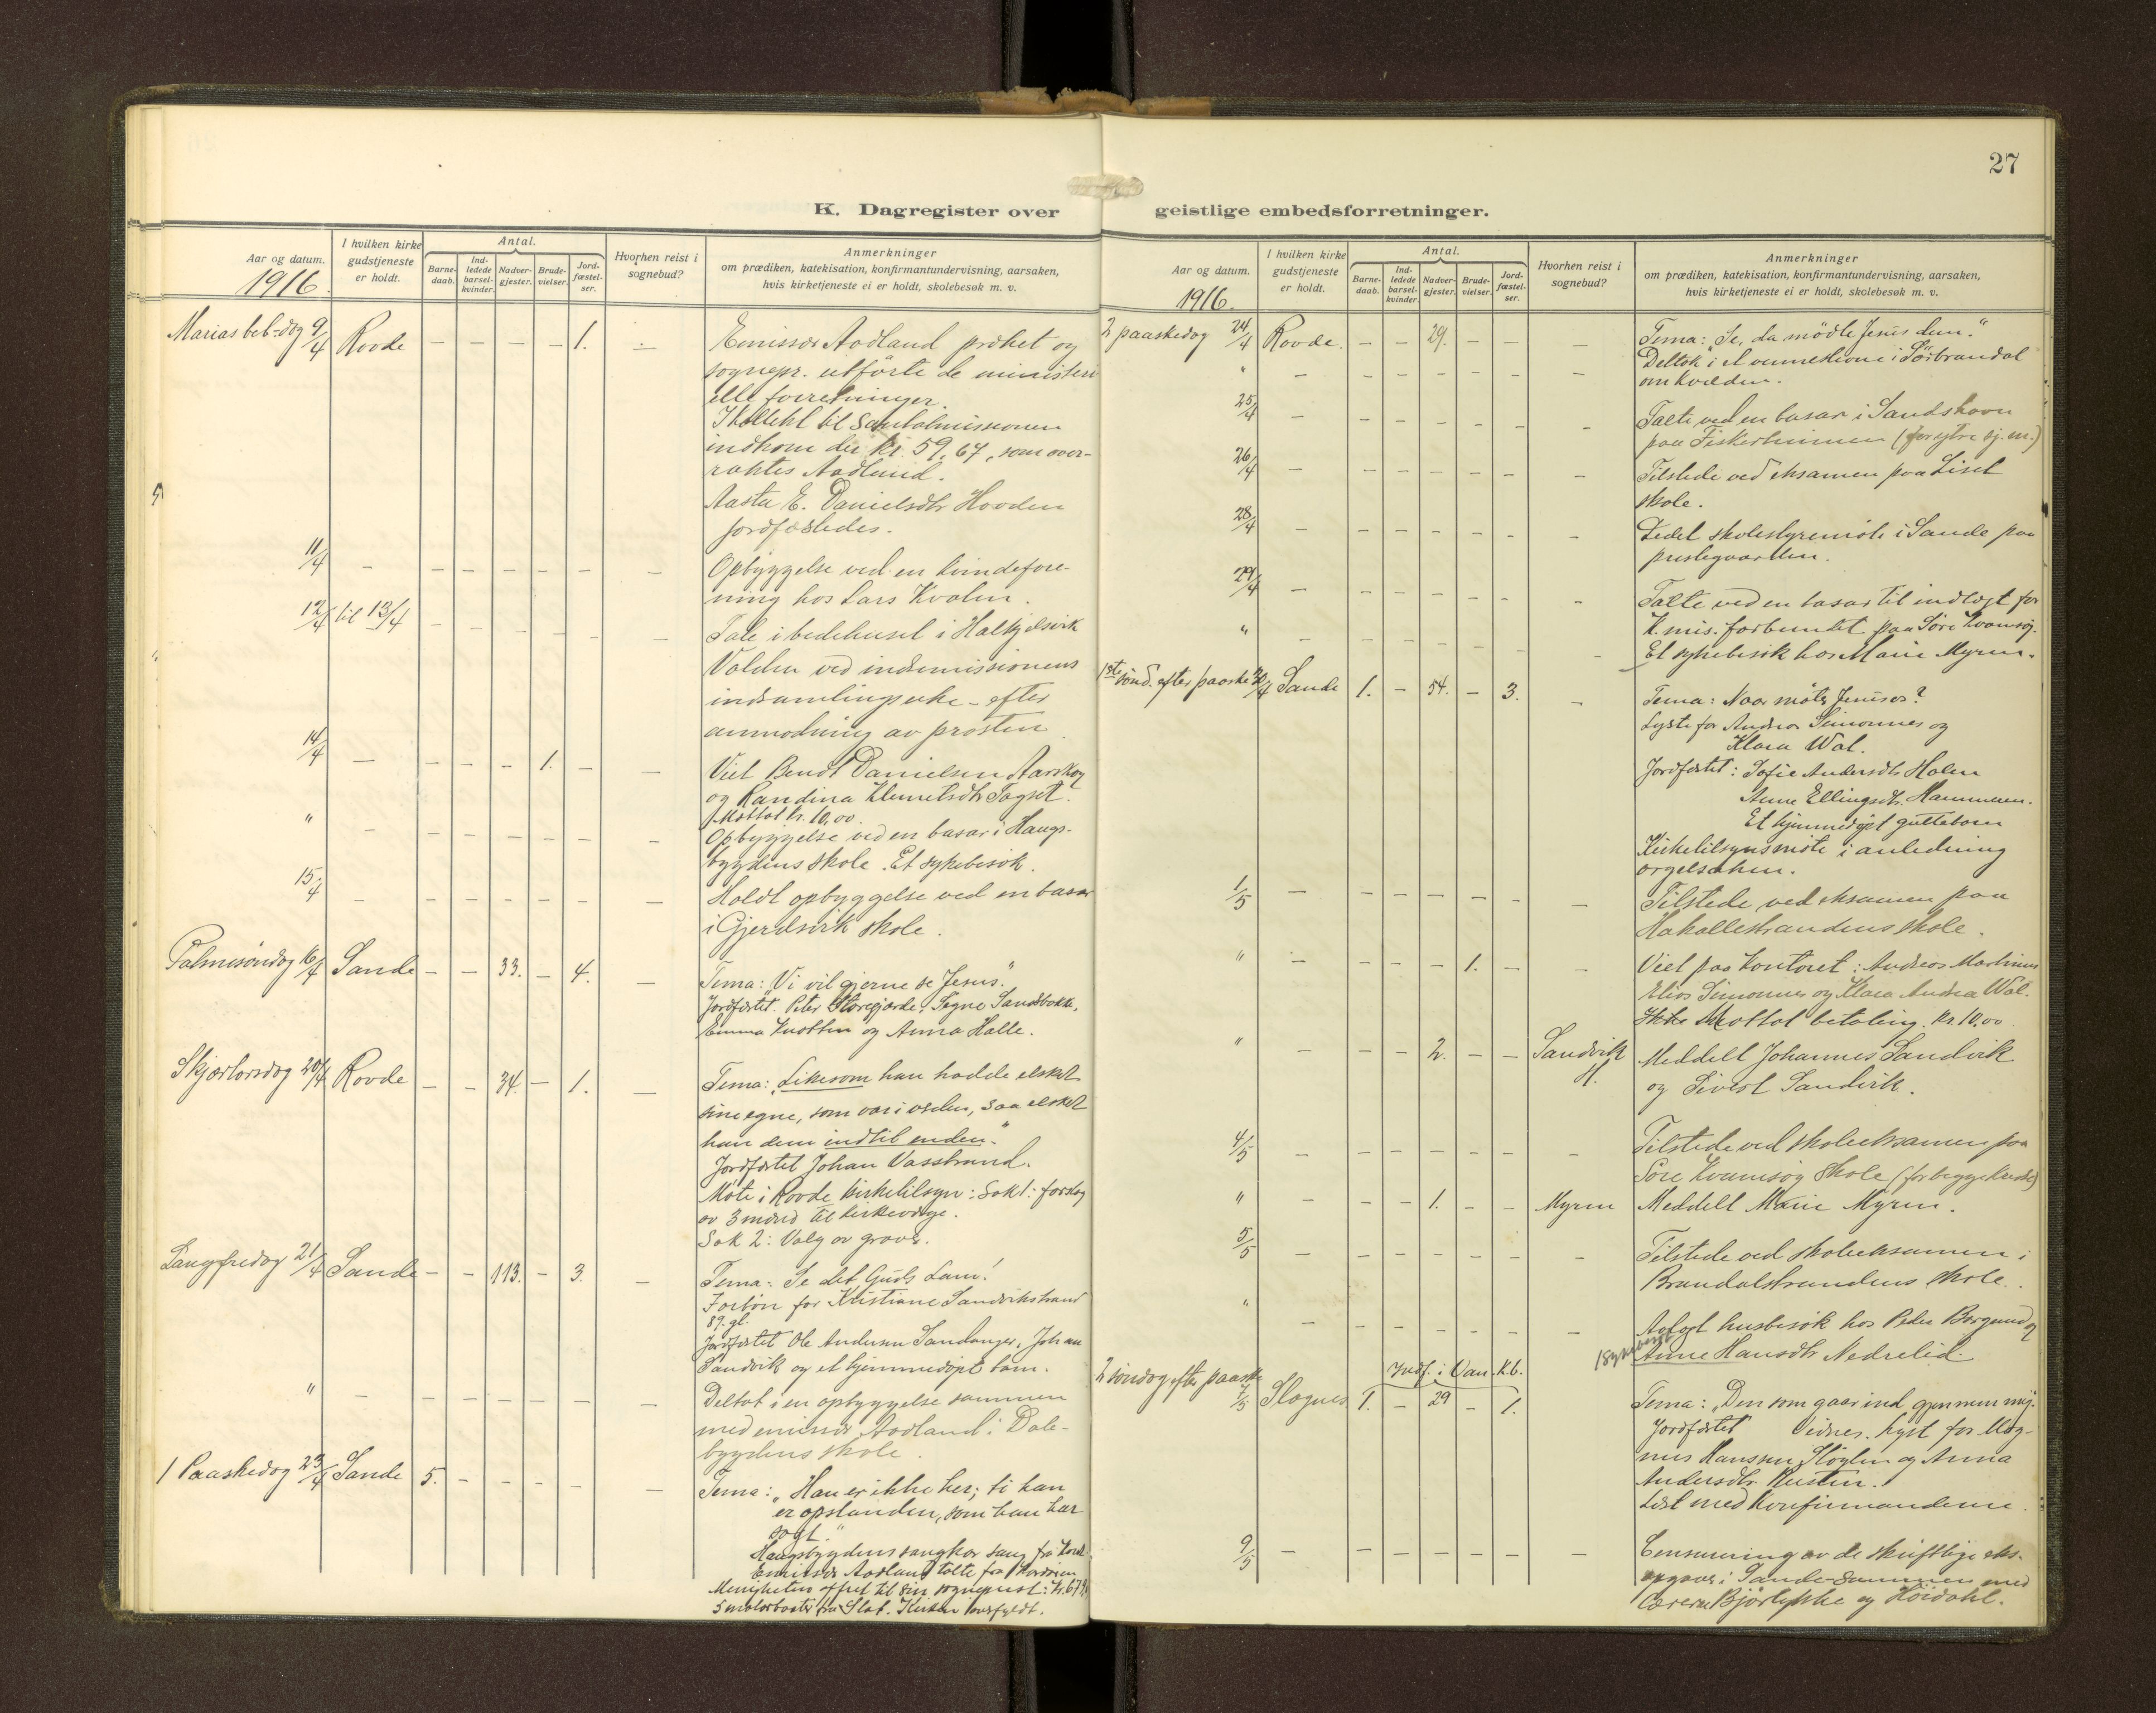 27
K. Dagregister over
geistlige embedsforretninger.
Aar og datum.
1916.
I hvilken kirke
gudstjeneste
er holdt.
Antal.
Barne-
daab.
Ind-
ledede
barsel-
kvinder.
Nadver-
gjester.
Brude-
vielser.
Jord-
fæstel-
ser.
Hvorhen reist i
sognebud?
Anmerkninger
om prædiken, katekisation, konfirmantundervisning, aarsaken,
hvis kirketjeneste ei er holdt, skolebesøk m. v.
Marias beb-dag 9/4 Rovde - - - - 1. -
Emissær Aadland præket og
sognepr. utførte de ministeri
elle forretninger.
I kollekt til Santalmissionen
indkom der kr. 59,67, som over-
raktes Aadland.
Aasta E. Danielsdtr Hovden
jordfæstedes.
11/4 - - - - - - -
Opbyggelse ved en kvindefore-
ning hos Lars Kvalen.
12/4 til 13/4 - - - - - -
Tale i bedehuset i Halkjelsvik
Volden ved indremissionens
indsamlingsuke - efter
anmodning av prosten.
14/4 - - - - 1. - -
Viet Bendt Danielsen Aarskog
og Randina Klemetsdtr Tagset.
Mottat kr. 10,00.
" - - - - - - -
Opbyggelse ved en basar i Haugs-
bygdens skole. Et sykebesøk.
15/4 - - - - - - -
Holdt opbyggelse ved en basar
i Gjerdsvik skole.
Palmesöndag 16/4 Sande - - 33. - 4. -
Tema: "Vi vil gjerne se Jesus".
Jordfæstet: Peter Storegjærde, Signe Sandsbakk,
Emma Knotten og Anna Halle.
Skjærtorsdag 20/4 Rovde - - 34. - 1. -
Tema: "Likesom han hadde elsket
sine egne, som var i verden, saa elsket
han dem indtil enden."
Jordfæstet Johan Vasstrand.
Møte i Rovde kirketilsyn: Sak 1: forslag
av 3 mænd til kirkeverge.
Sak 2: Valg av graver.
Langfredag 21/4 Sande - - 113. - 3. -
Tema: Se det Guds Lam!
Forbön for Kristiane Sandvikstrand
89. gl.
Jordfæstet Ole Andersen Sandanger, Johan
Sandvik og et hjemmedøpt barn.
" - - - - - - -
Deltok i en opbyggelse sammen
med emissær Aadland i Dale-
bygdens skole.
1 Paaskedag 23/4 Sande 5. - - - - -
Tema: "Han er ikke her; ti han
er opstanden, som han har
sagt."
Haugsbygdens sangkor sang fra koret.
Emissær Aadland talte fra kordøren
Menigheten offret til sin sogneprest: kr.
5 motorbaater fra Stat. Kirken overfyldt.
Aar og datum.
1916.
I hvilken kirke
gudstjeneste
er holdt.
Antal.
Barne-
daab.
Ind-
ledede
barsel-
kvinder.
Nadver-
gjester.
Brude-
vielser.
Jord-
fæstel-
ser.
Hvorhen reist i
sognebud?
Anmerkninger
om prædiken, katekisation, konfirmantundervisning, aarsaken,
hvis kirketjeneste ei er holdt, skolebesøk m. v.
2 paaskedag 24/4 Rovde. - - 29. - - -
Tema: "Se, da mödte Jesus dem."
Deltok i et vennestevne i Sörbrandal
om kvelden.
25/4 - - - - - - -
Talte ved en basar i Sandshavn
paa Fiskerheimen (for ytre sj.m.)
26/4 - - - - - - -
Tilstede ved eksamen paa Liset
skole.
28/4 - - - - - - -
Ledet skolestyremöte i Sande paa
prestegaarden.
29/4 - - - - - - -
Talte ved en basar til indtægt for
K.mis. forbundet paa Söre Kvamsöy.
" - - - - - - -
Et sykebesök hos Marie Myren.
1ste sönd. efter paaske 30/4 Sande 1. - 54. - 3. -
Tema: Naar møter Jesus os?
Lyste for Andreas Simonnes og
Klara Wal.
Jordfæstet: Sofie Andersdtr Holen
Anne Ellingsdtr. Hammeren.
Et hjemmedøpt guttebarn
Kirketilsynsmöte i anledning
orgelsaken.
1/5 - - - - - - -
Tilstede ved eksamen paa
Hakallestrandens skole.
" - - - - 1. - -
Viet paa kontoret: Andreas Martinus
Elias Simonnes og Klara Andrea Wal.
Mottat betaling. kr. 10,00
" - - - 2. - - Sandvik
Meddelt Johannes Sandvik
og Sivert Sandvik.
4/5 - - - - - - -
Tilstede ved skoleeksamen paa
Søre Kvamsøy skole (for begge kredse)
" - - - 1. - - Myren
Meddelt Marie Myren.
5/5 - - - - - - -
Tilstede ved skoleeksamen i
Brandalstrandens skole.
" - - - - - - -
Avlagt husbesøk hos Peder Borgund og
1 sykebesøk
Anne Hansdtr Nedrelid.
Indf. i Van. K.b.
2 söndag efter paaske 7/5 Slagnes 1. - 29 - 1.
Tema: "Den som gaar ind gjennem mig.
Jordfæstet Vidnes. Lyst for Mag-
nus Hansen Støylen og Anna
Andersdtr. Rusten.
Læst med konfirmanderne.
9/5 - - - - - - -
Censurering av de skriftlige eks.
opgaver i Sande sammen med
lærerne Bjørlykke og Höidahl.